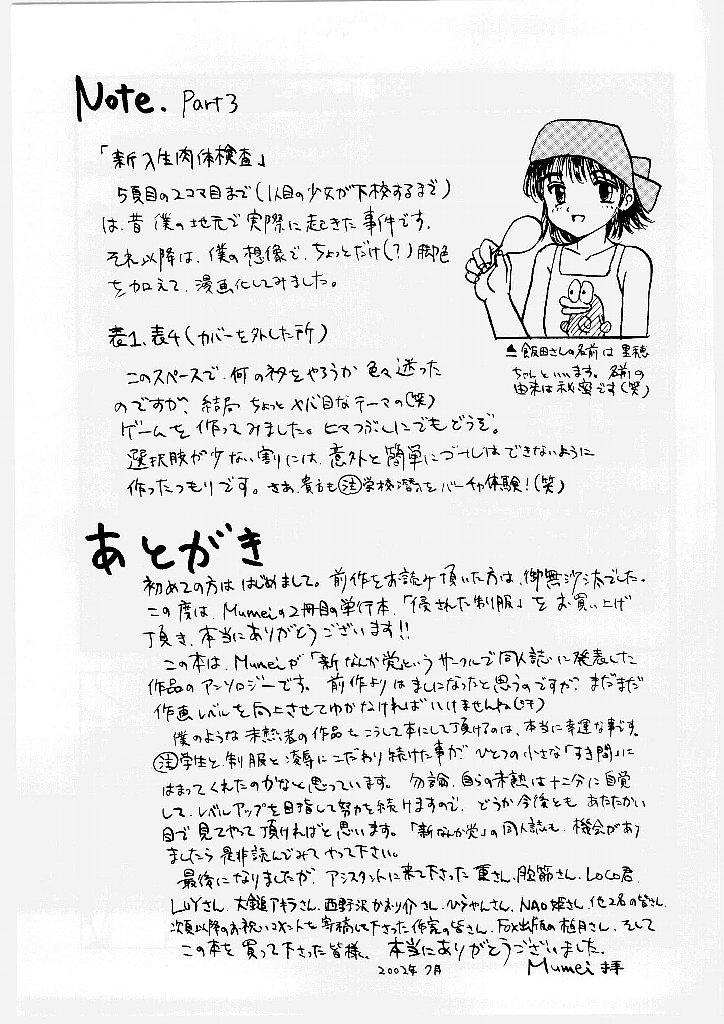 Note. Part3
「新入生肉体検査」
5頁目の2コマ目まで(1人目の少女が下校するまで)
は、昔 僕の地元で実際に起きた事件です。
それ以降は、僕の想像で、ちょっとだけ(?)脚色
を加えて、漫画化してみました。
▲飯田さんの名前は 里穂
ちゃんといいます。名前の
由来は秘密です(笑)
表1、表4(カバーを外した所)
このスペースで、何のネタをやろうか 色々迷った
のですが、結局 ちょっとヤバ目なテーマの(笑)
ゲームを作ってみました。ヒマつぶしにでもどうぞ。
選択肢が少ない割りには、意外と簡単にゴールはできないように
作ったつもりです。さあ、貴方も 学校潜入をバーチャ体験!(笑)
あとがき
初めての方ははじめまして。前作をお読み頂いた方は、御無沙汰でした。
この度は、Mumeiの2冊目の単行本、「侵された制服」をお買い上げ
頂き、本当にありがとうございます!!
この本は、Mumeiが「新なんか党」というサークルで同人誌に発表した
作品のアンソロジーです。前作よりはましになったと思うのですが、まだまだ
作画レベルを向上させてゆかなければいけませんね(汗)
僕のような未熟者の作品をこうして本にして頂けるのは、本当に幸運な事です。
学生と制服と凌辱にこだわり続けた事が、ひとつの小さな「すき間」に
はまってくれたのかなと思っています。勿論、自らの未熟は十二分に自覚
して、レベルアップを目指して努力を続けますので、どうか今後とも あたたかい
目で見てやって頂ければと思います。「新なんか党」の同人誌も、機会があり
ましたら 是非読んでみてやって下さい。
最後になりましたが、アシスタントに来て下さった 重さん、脛筋さん、LOCO君、
LUYさん、大鎚アキラさん、西野沢かおり介さん、ひろやんさん、NAO姫さん、他2名の皆さん、
次頁以降のお祝いコメントを寄稿して下さった作家の皆さん、FOX出版の植月さん、そして
この本を買って下さった皆様、本当にありがとうございました。
2002年7月 Mumei 拝